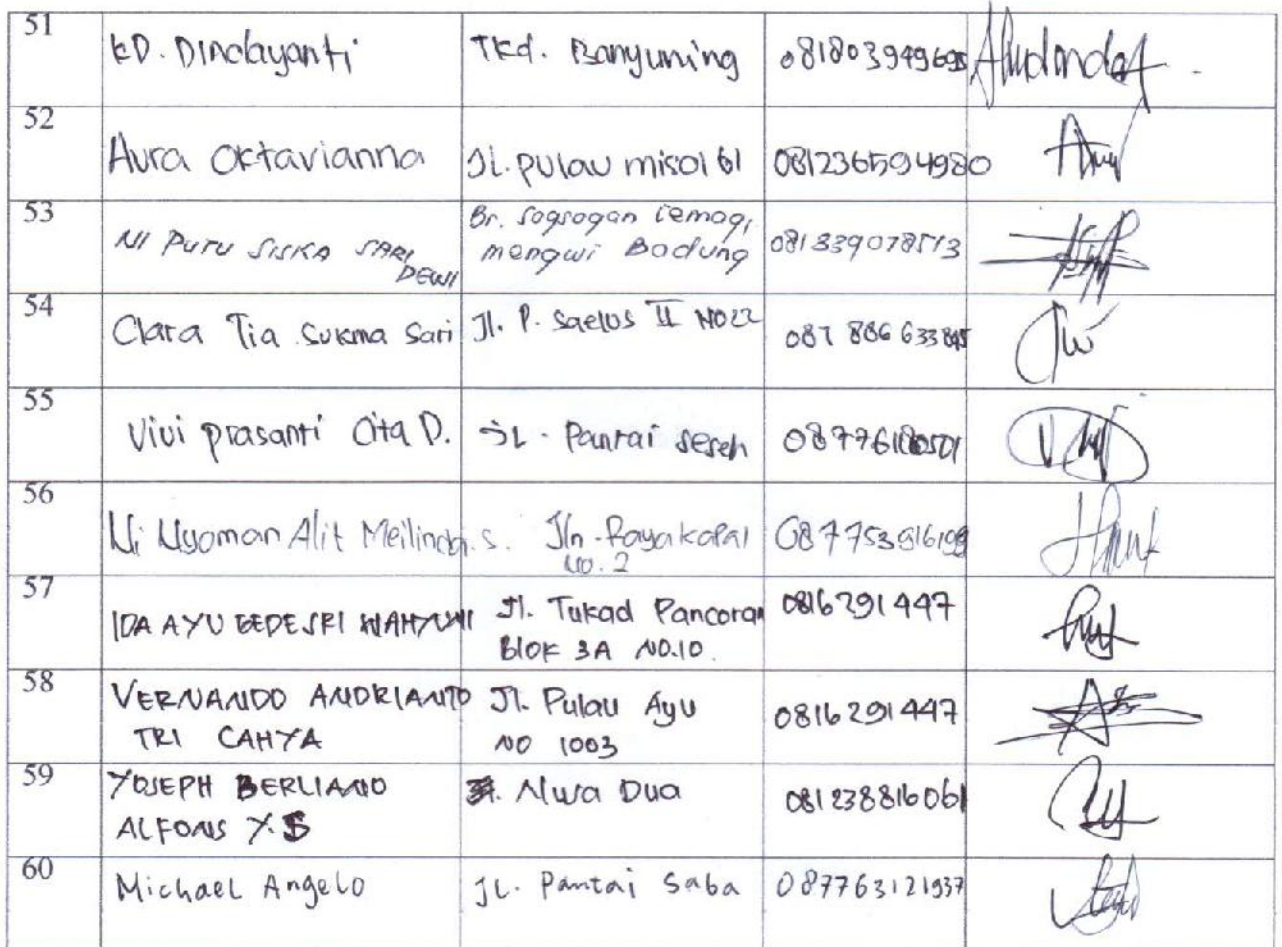 51 KD. Dindayanti TKd. Banyuning 081803949695
52 Aura Oktavianna Jl. Pulau misol 61 081236594980
53 NI PUTU SISKA SARI DEWI Br. Sogsogan Cemagi, mengwi Badung 081339078513
54 Clara Tia Sukma Sari Jl. P. Saelus II NO22 087886633845
55 Vivi prasanti Cita D. JL. Pantai Seseh 08776180501
56 Ni Nyoman Alit Meilinda.S. Jln. Raya kapal no. 2 087753916199
57 IDA AYU GEDE SRI WAHYUNI Jl. Tukad Pancoran Blok 3A NO.10. 0816291447
58 VERNANDO ANDRIANTO TRI CAHYA Jl. Pulau Ayu NO 1003 0816291447
59 YOSEPH BERLIANO ALFONS Y.S Nusa Dua 081238816061
60 Michael Angelo JL. Pantai Saba 087763121937